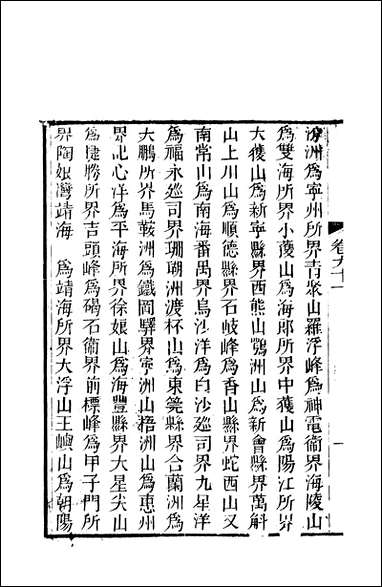 洲為寧州所界青聚山羅浮峰為神電衛界海陵山
為雙海所界小獲山為海郎所界中獲山為陽江所界
大獲山為新寧縣界西熊山鶚洲山為新會縣界萬斛
山上川山為順德縣界石岐峰為香山縣界蛇西山又
南常山為南海番禺界烏沙洋為白沙廵司界九星洋
為福永廵司界珊瑚洲渡杯山為東筦縣界合蘭洲為
大鵬所界馬鞍洲為鐵岡驛界寧洲山梧洲山為惠州
界記心洋為平海所界徐娘山為海豐縣界大星尖山
為捷勝所界吉頭峰為碣石衛界前標峰為甲子門所
界陶娘灣靖海 為靖海所界大浮山王嶼山為朝陽
卷九十一